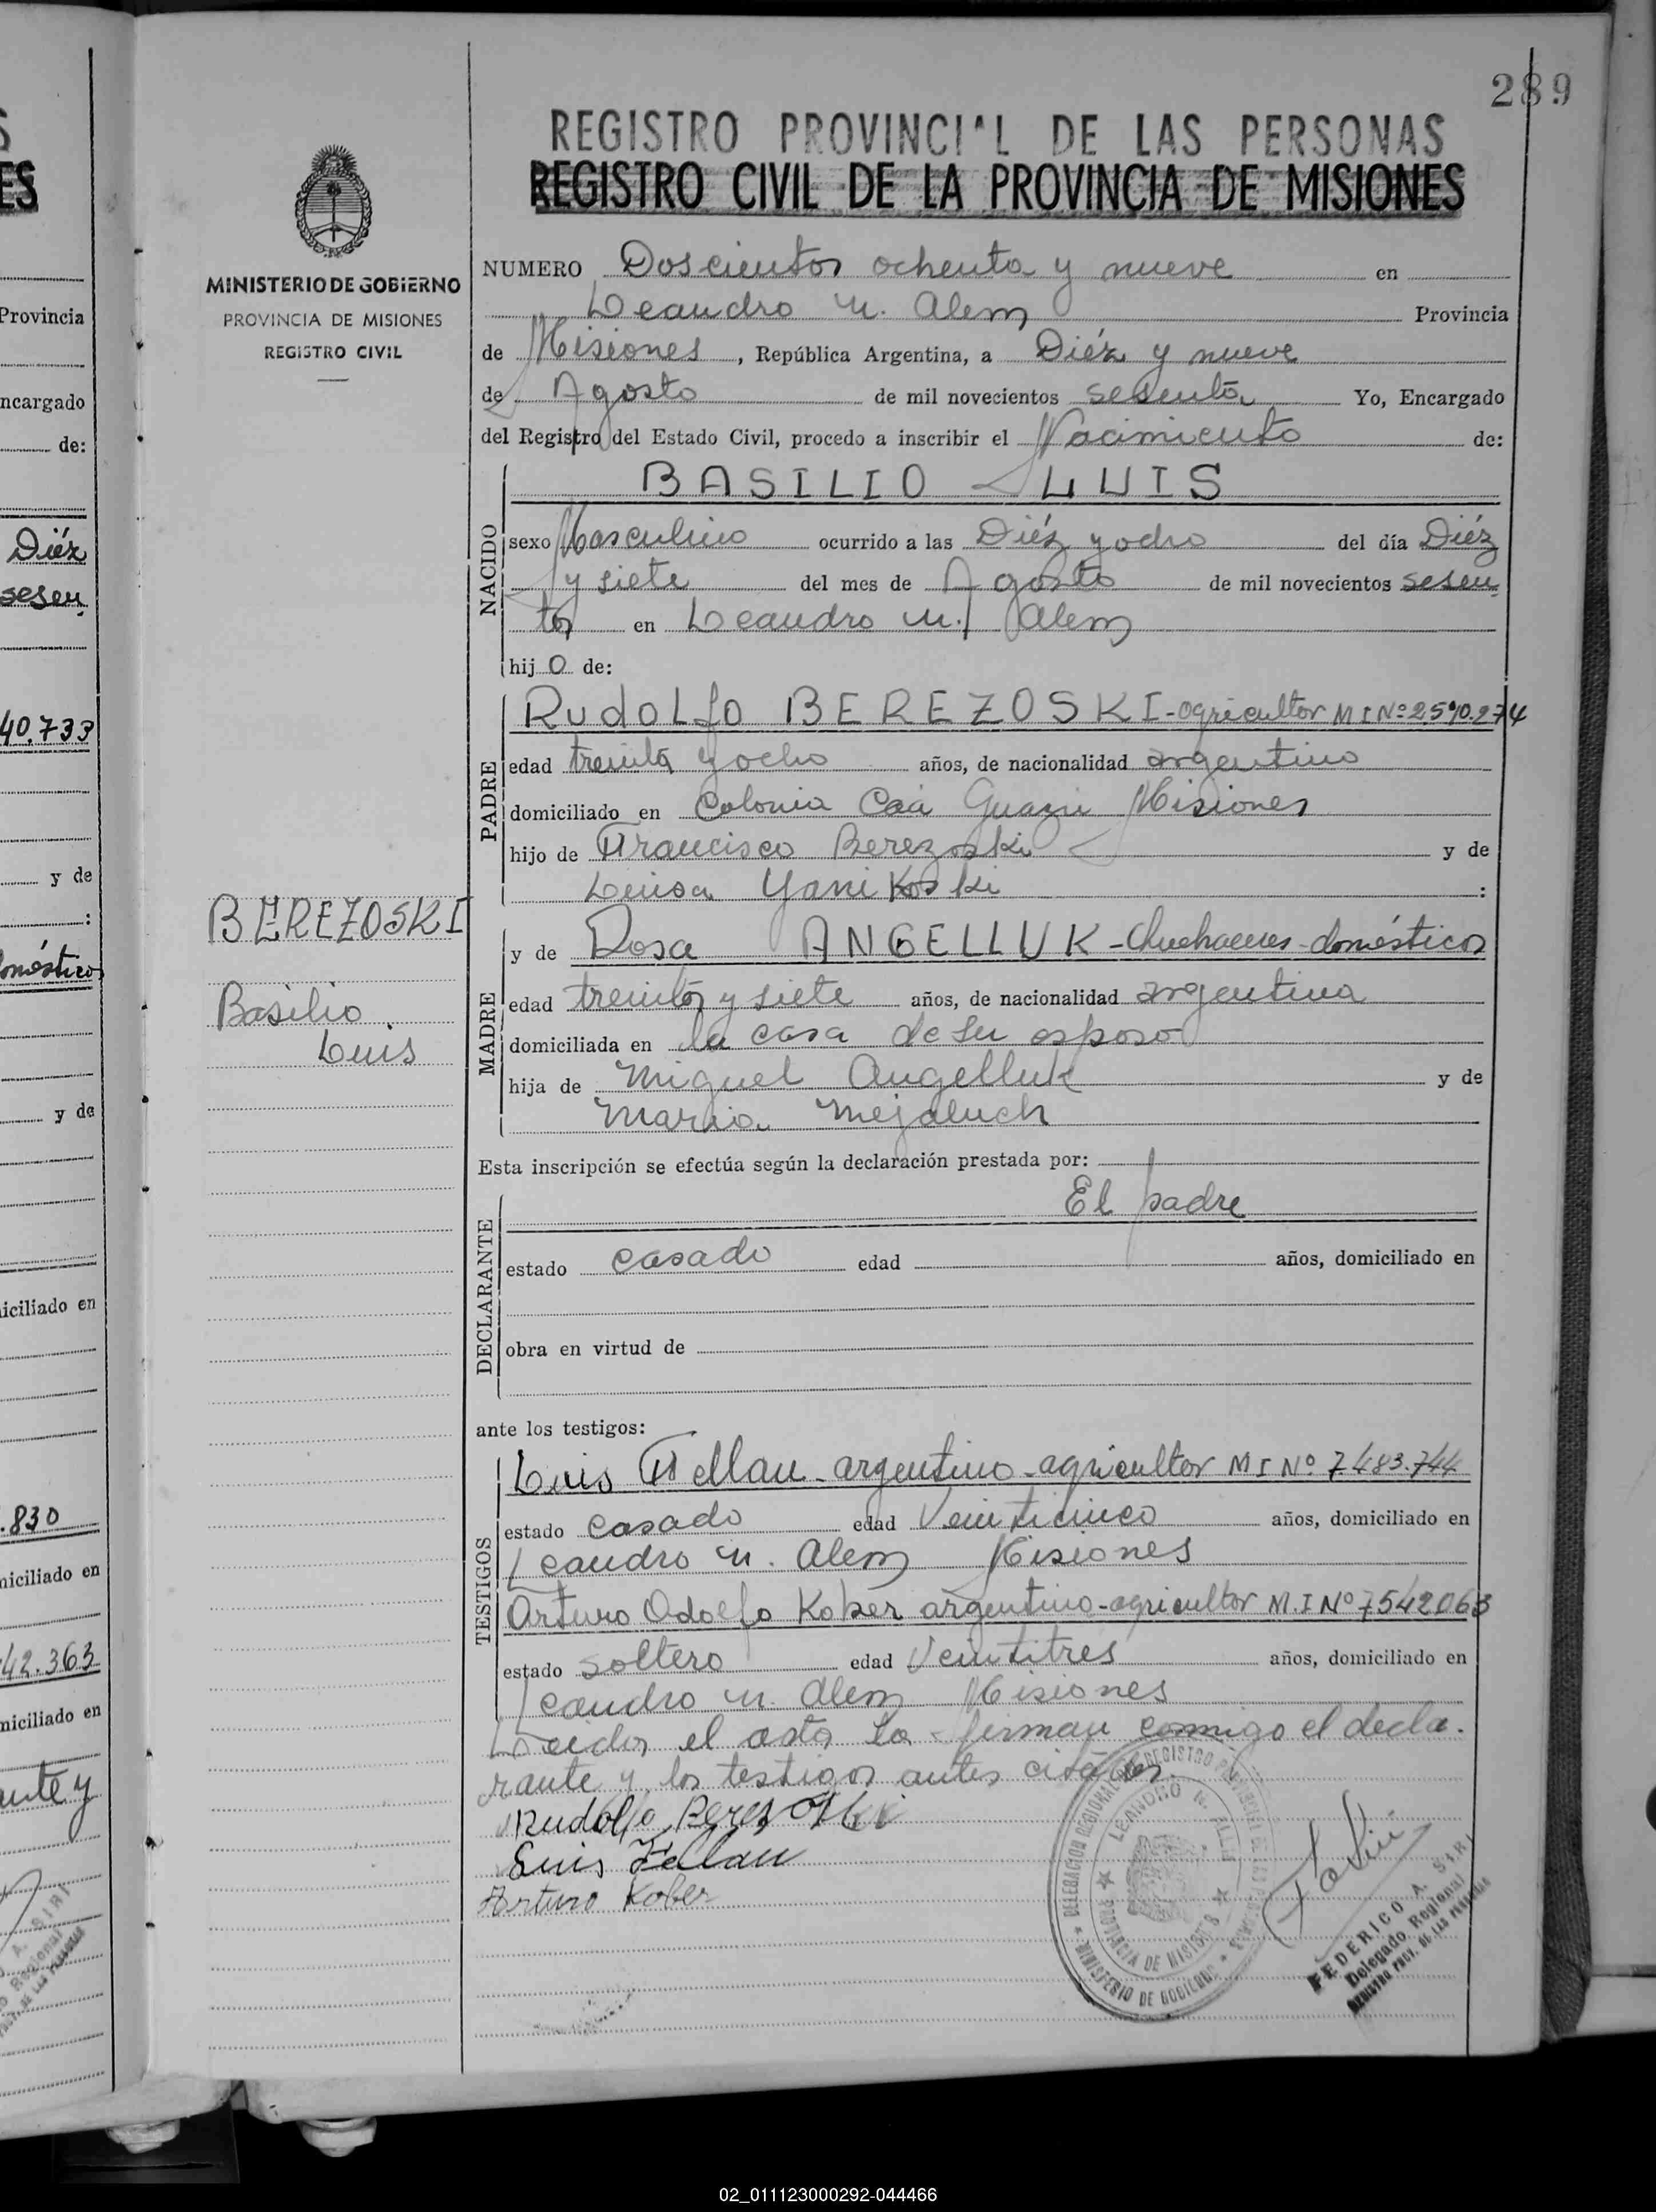 289
REGISTRO PROVINCIAL DE LAS PERSONAS
REGISTRO CIVIL DE LA PROVINCIA DE MISIONES
MINISTERIO DE GOBIERNO
PROVINCIA DE MISIONES
REGISTRO CIVIL
NUMERO Doscientos ochenta y nueve en
Leandro N. Alem Provincia
de Misiones, República Argentina, a Diéz y nueve
de Agosto de mil novecientos sesenta Yo, Encargado
del Registro del Estado Civil, procedo a inscribir el Nacimiento de:
NACIDO
BASILIO LUIS
sexo Masculino ocurrido a las Diéz y ocho del día Diéz
y siete del mes de Agosto de mil novecientos sesen
ta en Leandro N. Alem
hijo de:
PADRE
Rudolfo BEREZOSKI - agricultor M I Nº 2.590.274
edad treinta y ocho años, de nacionalidad argentino
domiciliado en Colonia Caá Guazú Misiones
hijo de Francisco Berezoski y de
Luisa Yanikoski :
BEREZOSKI
Basilio
Luis
MADRE
y de Rosa ANGELLUK - Quehaceres - domésticos
edad treinta y siete años, de nacionalidad argentina
domiciliada en la casa de su esposo
hija de Miguel Angelluk y de
Maria Mejaluch
Esta inscripción se efectúa según la declaración prestada por:
DECLARANTE
El padre
estado casado edad años, domiciliado en
obra en virtud de
ante los testigos:
TESTIGOS
Luis Fellau - argentino - agricultor M I Nº 7.483.744
estado casado edad Veinticinco años, domiciliado en
Leandro N. Alem Misiones
Arturo Adolfo Kober argentino - agricultor M.I Nº 7542063
estado soltero edad Veintitres años, domiciliado en
Leandro N. Alem Misiones
Leida el acta la firman conmigo el decla.
rante y los testigos antes citados.
Rudolfo Berezoski
Luis Felau
Arturo Kober
LEANDRO N. ALEM
PROVINCIA DE MISIONES
MINISTERIO DE GOBIERNO
FEDERICO A. SIRI
Delegado Regional
REGISTRO PROV. DE LAS PERSONAS
ES
Provincia
ncargado
de:
Diéz
sesen
40.733
y de
:
oméstico
y de
iciliado en
.830
niciliado en
42.363
niciliado en
ante y
02_011123000292-044466